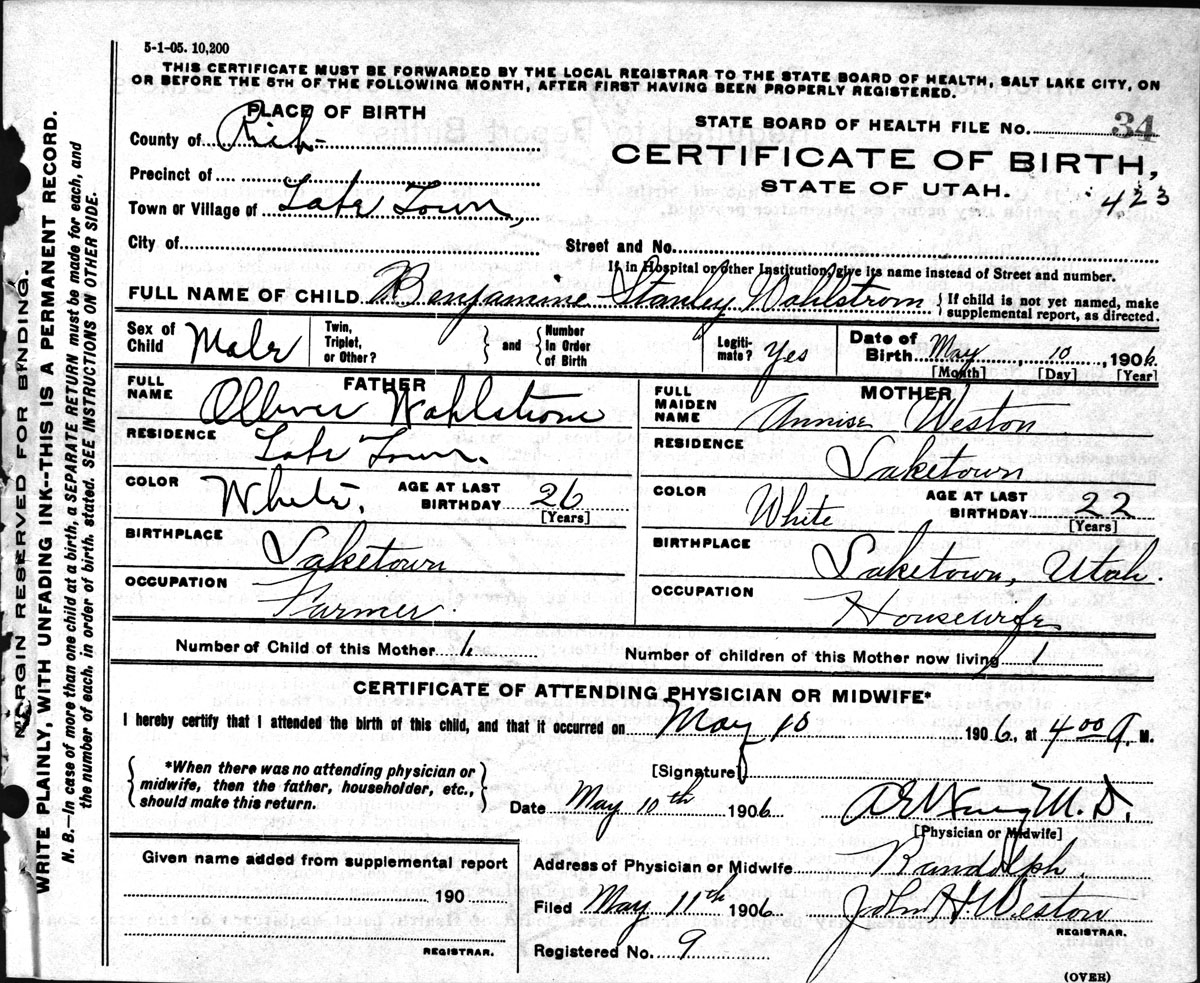 5-1-05. 10,200
THIS CERTIFICATE MUST BE FORWARDED BY THE LOCAL REGISTRAR TO THE STATE BOARD OF HEALTH, SALT LAKE CITY, ON
OR BEFORE THE 5TH OF THE FOLLOWING MONTH, AFTER FIRST HAVING BEEN PROPERLY REGISTERED.
PLACE OF BIRTH
County of Rich
Precinct of
Town or Village of Lake Town,
City of
STATE BOARD OF HEALTH FILE NO. 34
CERTIFICATE OF BIRTH,
STATE OF UTAH.
423
Street and No.
If in Hospital or other Institution, give its name instead of Street and number.
FULL NAME OF CHILD Benjamine Stanley Wahlstrom { If child is not yet named, make
supplemental report, as directed.
Sex of Child Male Twin, Triplet, or Other? } and { Number In Order of Birth Legiti- mate? Yes Date of Birth May, 10, 1906.
[Month] [Day] [Year]
FATHER
FULL NAME Olliver Wahlstrom
RESIDENCE Lake Town.
COLOR White. AGE AT LAST BIRTHDAY 26
[Years]
BIRTHPLACE Laketown
OCCUPATION Farmer.
MOTHER
FULL MAIDEN NAME Annise Weston
RESIDENCE Laketown
COLOR White AGE AT LAST BIRTHDAY 22
[Years]
BIRTHPLACE Laketown, Utah.
OCCUPATION Housewife
Number of Child of this Mother 1. Number of children of this Mother now living 1
CERTIFICATE OF ATTENDING PHYSICIAN OR MIDWIFE*
I hereby certify that I attended the birth of this child, and that it occurred on May 10 1906., at 4 00 A. M.
{ *When there was no attending physician or
midwife, then the father, householder, etc.,
should make this return. }
[Signature]
Date May 10th 1906 M.D.
[Physician or Midwife]
Given name added from supplemental report
190
REGISTRAR.
Address of Physician or Midwife Randolph.
Filed May 11th 1906 John H Weston
REGISTRAR.
Registered No. 9
(OVER)
MARGIN RESERVED FOR BINDING.
WRITE PLAINLY, WITH UNFADING INK--THIS IS A PERMANENT RECORD.
N. B.—In case of more than one child at a birth, a SEPARATE RETURN must be made for each, and
the number of each, in order of birth, stated. SEE INSTRUCTIONS ON OTHER SIDE.